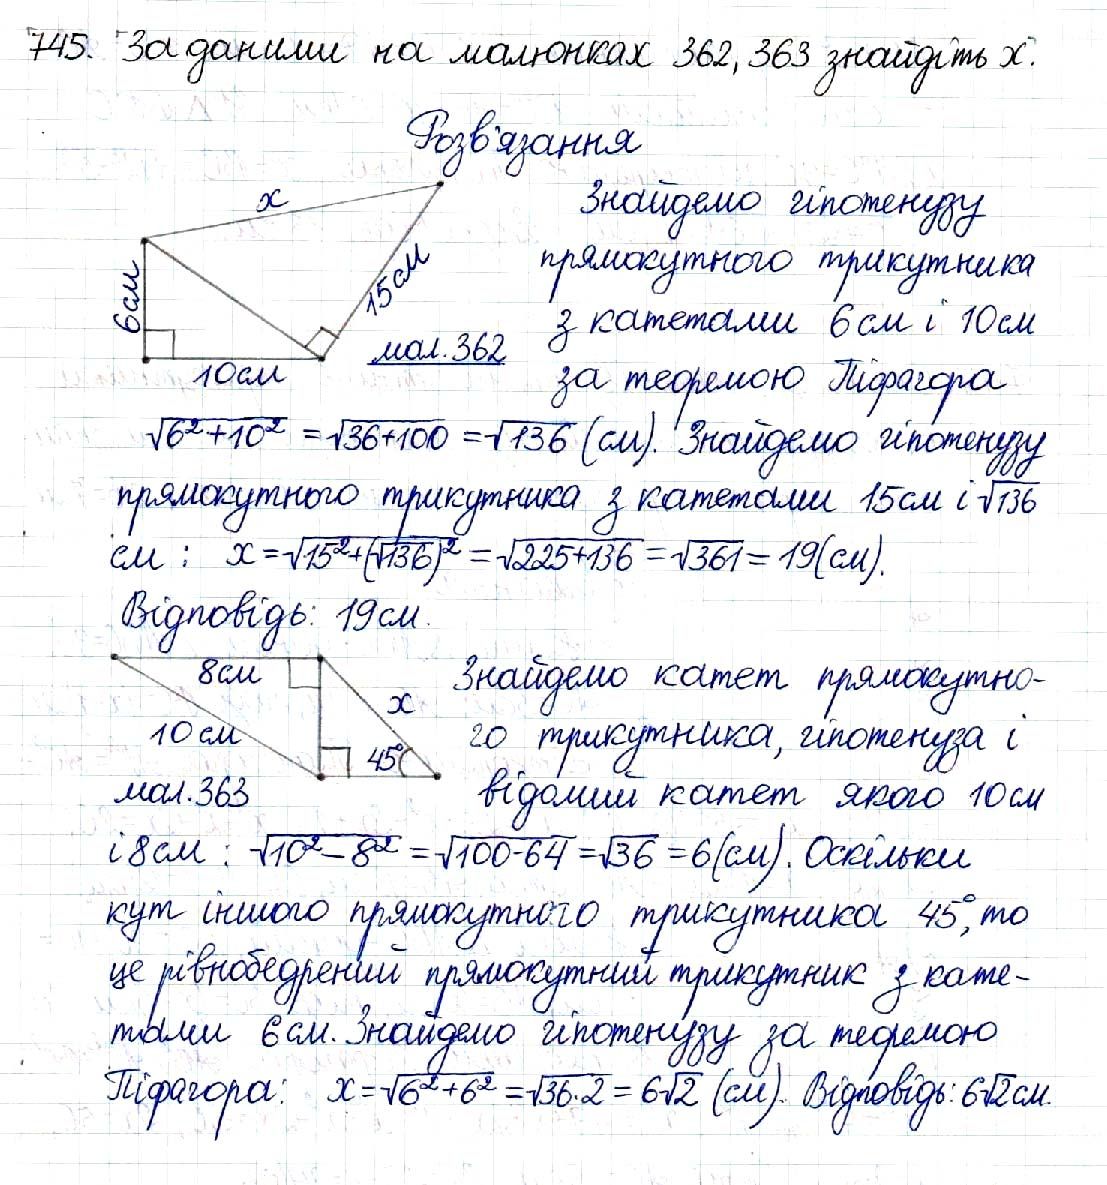 745. За даними на малюнках 362, 363 знайдіть x.
Розв'язання
x
6 см
10 см
15 см
мал. 362
Знайдемо гіпотенузу
прямокутного трикутника
з катетами 6 см і 10 см
за теоремою Піфагора
√6²+10² = √36+100 = √136 (см). Знайдемо гіпотенузу
прямокутного трикутника з катетами 15 см і √136
см : x = √15²+(√136)² = √225+136 = √361 = 19 (см).
Відповідь: 19 см.
8 см
10 см
x
45°
мал. 363
Знайдемо катет прямокутно-
го трикутника, гіпотенуза і
відомий катет якого 10 см
і 8 см : √10²-8² = √100-64 = √36 = 6 (см). Оскільки
кут іншого прямокутного трикутника 45°, то
це рівнобедрений прямокутний трикутник з кате-
тами 6 см. Знайдемо гіпотенузу за теоремою
Піфагора: x = √6²+6² = √36·2 = 6√2 (см). Відповідь: 6√2 см.